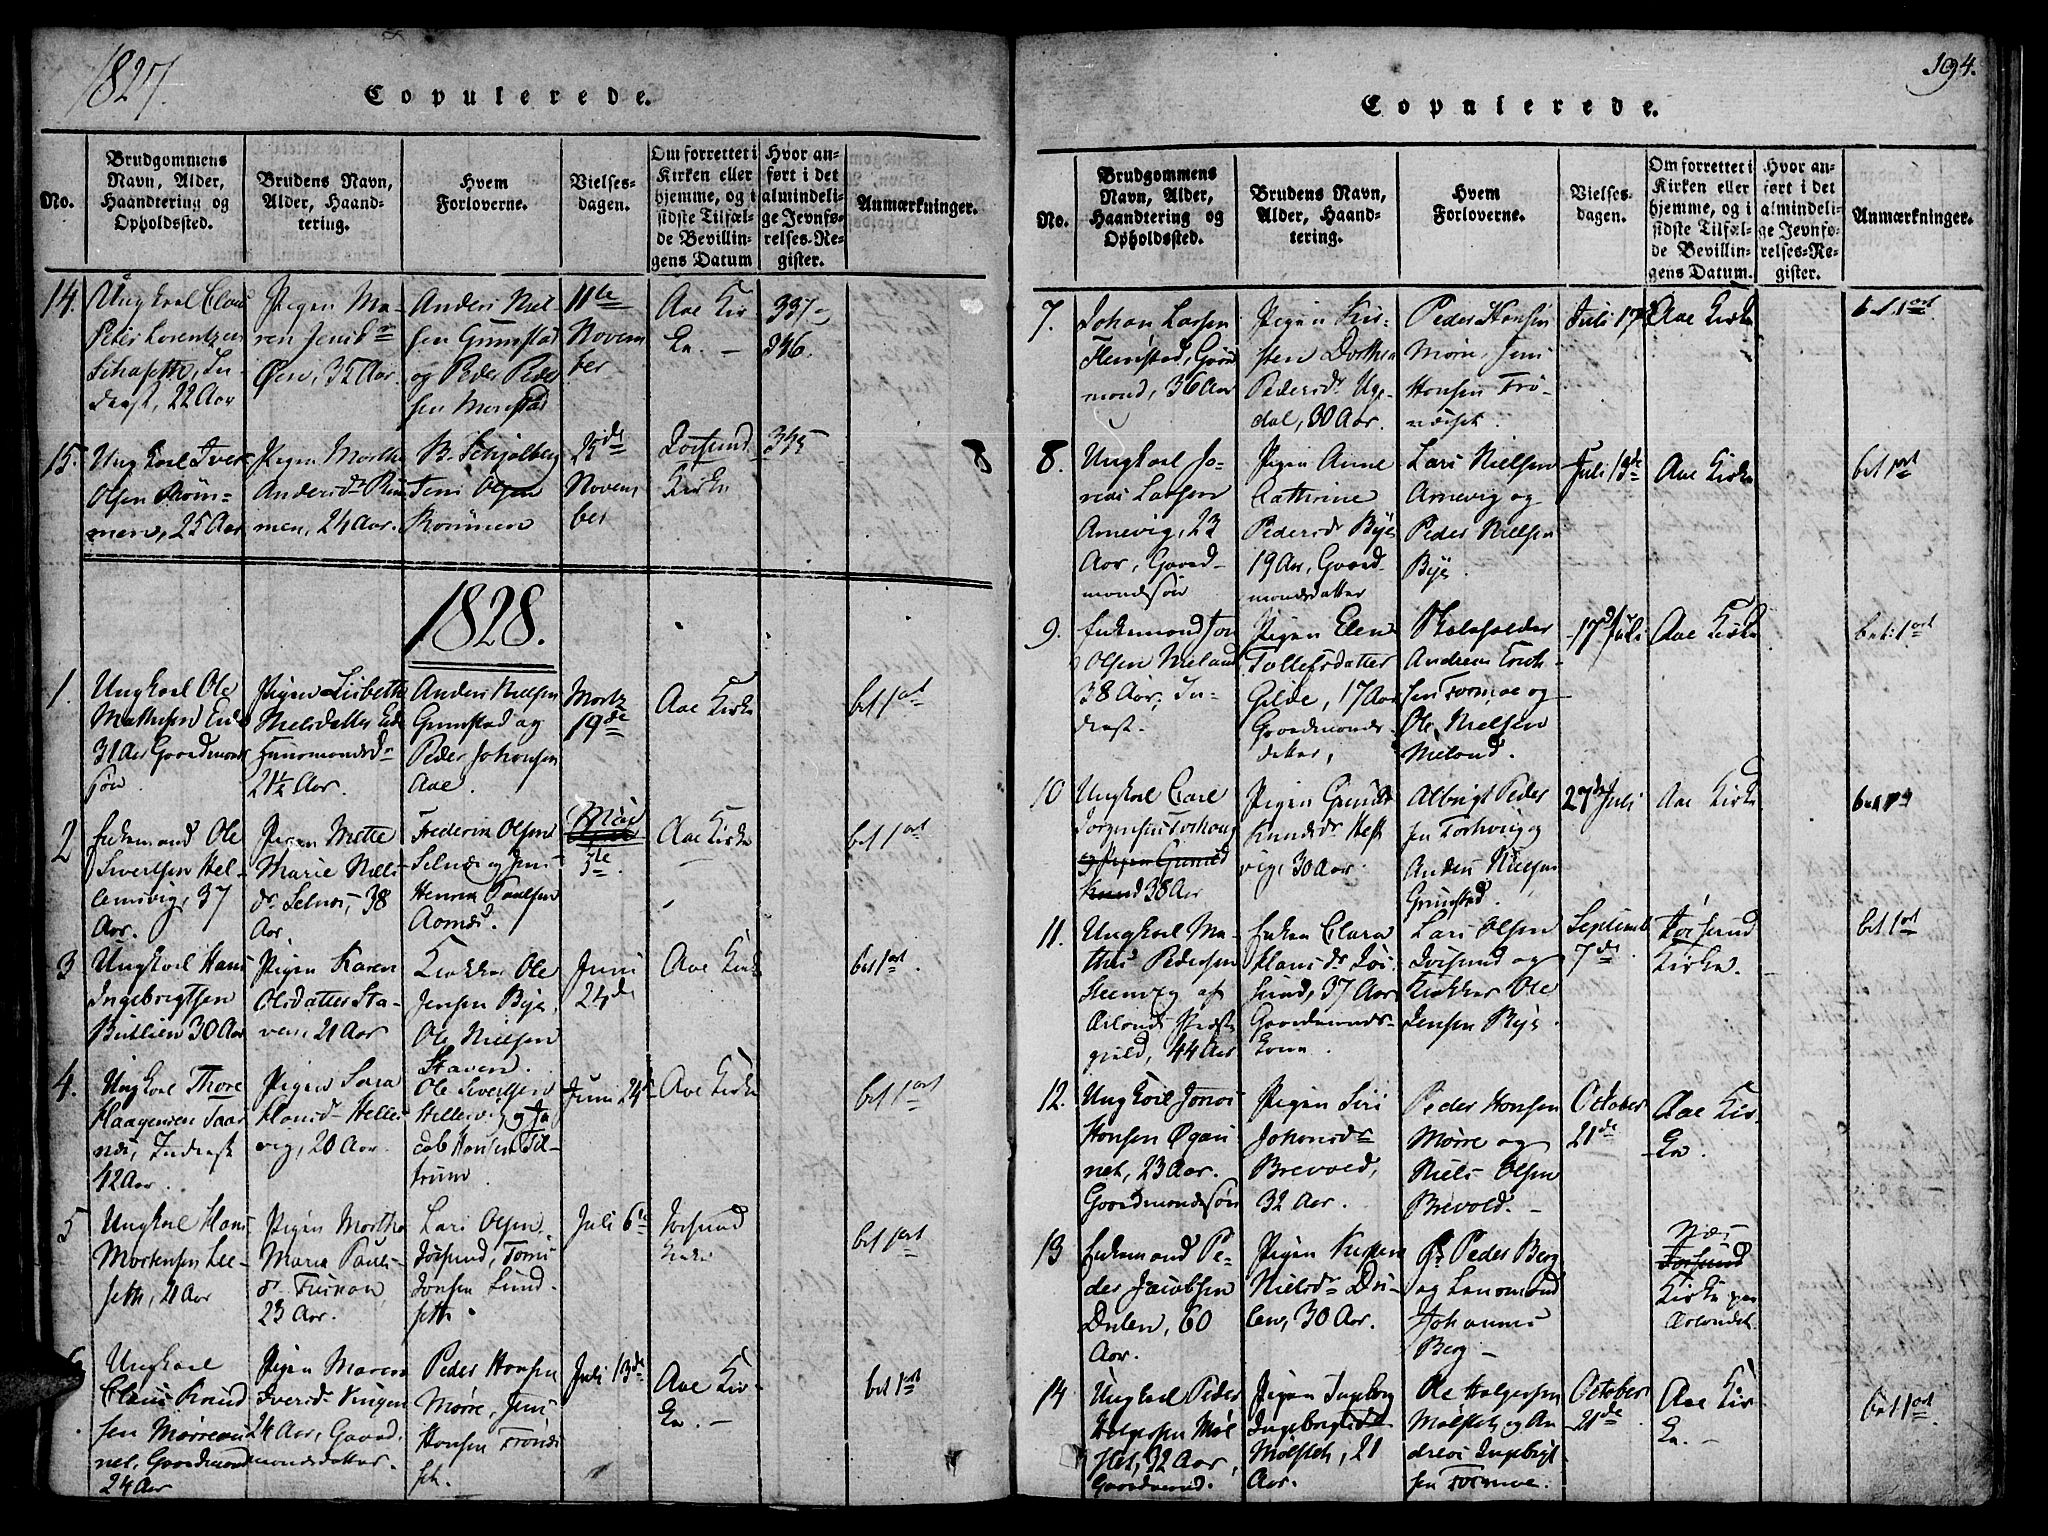 1827.
Copulerede.
No.
Brudgommens
Navn, Alder,
Haandtering og
Opholdssted.
Brudens Navn,
Alder, Haand-
tering.
Hvem
Forloverne.
Vielses-
dagen.
Om forrettet i
Kirken eller
hjemme, og i
sidste Tilfæl-
de Bevillin-
gens Datum
Hvor an-
ført i det
almindeli-
ge Jevnfø-
relses-Re-
gister.
Anmærkninger.
14.
Ungkarl Claus
Peter Lorentzen
Inderst, 22 Aar
Pigen Ma-
ren Jensdr
Øien, 35 Aar.
Anders Niel-
sen Grimstad
og Peder Peder
sen
11te
Novem
ber
Aae Kir
ke. -
337 og
346.
15.
Ungkarl Iver
Olsen Rom-
men, 25 Aar
Pigen Marthe
Andersdr Rom
men, 24 Aar.
B. Schjølberg
Jens Olsen
Rommen
25de
Novem
ber
Jøssund
Kirke
345
1828.
1.
Ungkarl Ole
Mathisen
31 Aar Gaardmands
søn
Pigen Lisbeth
Nielsdatter
Huusmandsdr
21½ Aar.
Anders Nielsen
Grimstad og
Peder Johansen
Aae.
Martz
19de
Aae Kirke
bet 1 ort
2
Enkemand Ole
Sivertsen Hel-
lemsvig, 37
Aar.
Pigen Mette
Marie Niels
dr Selnæs, 38
Aar
Frederik Olsen
Selnæs og Jens
Henrik Paulsen
Aarnæs.
Mai
5te
Aae Kirke
bet 1 ort
3
Ungkarl Hans
Ingebrigtsen
30 Aar
Pigen Karen
Olsdatter Sta-
ven, 21 Aar
Klokker Ole
Jensen Bye,
Ole Nielsen
Staven.
Juni
24de
Aae Kirke
bet 1 ort.
4.
Ungkarl Thore
Haagensen
Inderst
42 Aar.
Pigen Sara
Hansdr Helle
vig, 20 Aar.
Ole Sivertsen
Hellevig, og Ja
cob Hansen
Juni 24de
Aae Kirke
bet 1 ort
5
Ungkarl Hans
Mortensen Lee-
seth, 21 Aar
Pigen Marthe
Maria Pauls-
dr
23 Aar.
Lars Olsen
Jøssund, Tønis
Jonsen Lund-
seth
Juli 6te
Jøssund
Kirke
bet 1 ort
6
Ungkarl
Claus Knud
sen Mørreau
net, Gaardmand
24 Aar
Pigen Maren
Iversdr Vingen
24 Aar, Gaard
mandsdatter.
Peder Hansen
Mørre, Jens
Hansen Trønd
set.
Juli 13de
Aae Kir-
ke. -
bet 1 ort
194.
Copulerede.
No.
Brudgommens
Navn, Alder,
Haandtering og
Opholdssted.
Brudens Navn,
Alder, Haand-
tering.
Hvem
Forloverne.
Vielses-
dagen.
Om forrettet i
Kirken eller
hjemme, og i
sidste Tilfæl-
de Bevillin-
gens Datum.
Hvor an-
ført i det
almindeli-
ge Jevnfø-
relses-Re-
gister.
Anmærkninger.
7.
Johan Larsen
Flenstad, Gaard
mand, 36 Aar
Pigen Kir-
sten Dorthea
Pedersdr Uge-
dal, 30 Aar.
Peder Hansen
Mørre, Jens
Hansen Trø-
ndset.
Juli 17de
Aae Kirke
bet. 1 ort
8
8.
Ungkarl Jo-
nas Larsen
Arnevig, 23
Aar, Gaard-
mandssøn
Pigen Anne
Cathrine
Pedersdr Bye
19 Aar, Gaard-
mandsdatter
Lars Nielsen
Arnevig og
Peder Nielsen
Bye.
Juli 13de
Aae Kirke
bet 1 ort
9.
Enkemand Jon
Olsen Nieland
38 Aar, In-
derst.
Pigen Elen
Tollefsdatter
Gilde, 17 Aar
Gaardmands-
datter,
Andreas
sen Tormoe og
Ole Nielsen
Nieland.
17de Juli
Aae Kirke
bet: 1 ort
10
Ungkarl Carl
Jørgensen Torhaug
og Pigen Gunild
Knud 38 Aar
Pigen Gunild
Knudsdr Hest
vig, 30 Aar.
Albrigt Peder
sen Torhvig og
Anders Nielsen
Grimstad.
27de Juli
Aae Kirke
bet 1 ort
11.
Ungkarl Ma-
this Pedersen
Steenveg af
Ørlands Præste
gield, 44 Aar
Enken Clara
Hansdr Jøs
sund, 37 Aar
Gaardmands-
kone.
Lars Olsen
Jøssund og
Klokker Ole
Jensen Bye.
Septemb
7de
Jøssund
Kirke.
bet 1 ort
12.
Ungkarl Jonas
Hansen Øgau
net, 23 Aar.
Gaardmandssøn
Pigen Siri
Johansdr
Brevold,
32 Aar.
Peder Hansen
Mørre og
Niels Olsen
Brevold. -
October
21de
Aae Kir-
ke.
13
Enkemand Pe-
der Jacobsen
Dulen, 60
Aar.
Pigen Kirsten
Nielsdr Du-
len, 30 Aar.
Hr. Peder Berg
og Lensmand
Johannes
Berg -
Næs
Jøssund
Kirke paa
Ørlandet.
14
Ungkarl Peder
Holgersen Møl
slet, 32 Aar,
Gaardmand.
Pigen Ingeborg
Ingebrigtsdr
Mølslet, 21
Aar.
Ole Holgersen
Mølslet og An
dreas Ingebrigt
sen Tormoe.
October
21de
Aae Kir-
ke. -
bet 1 ort